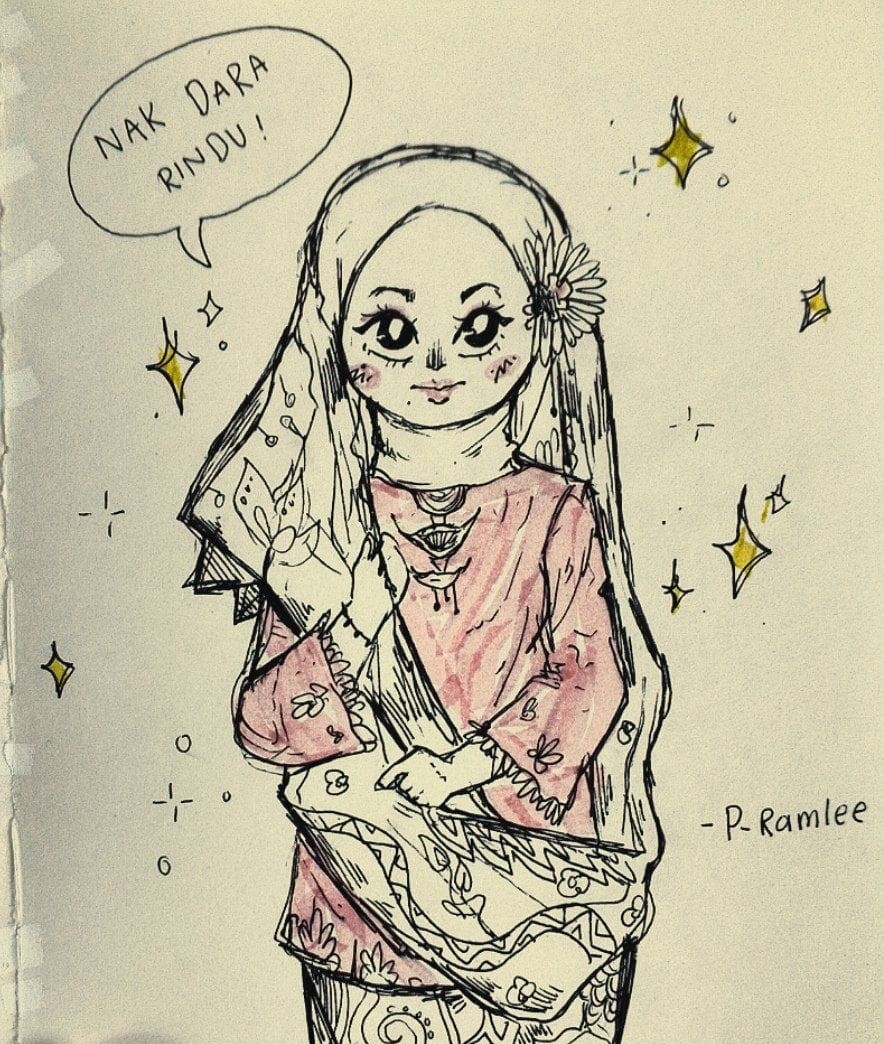 NAK DARA
RINDU!
- P-Ramlee